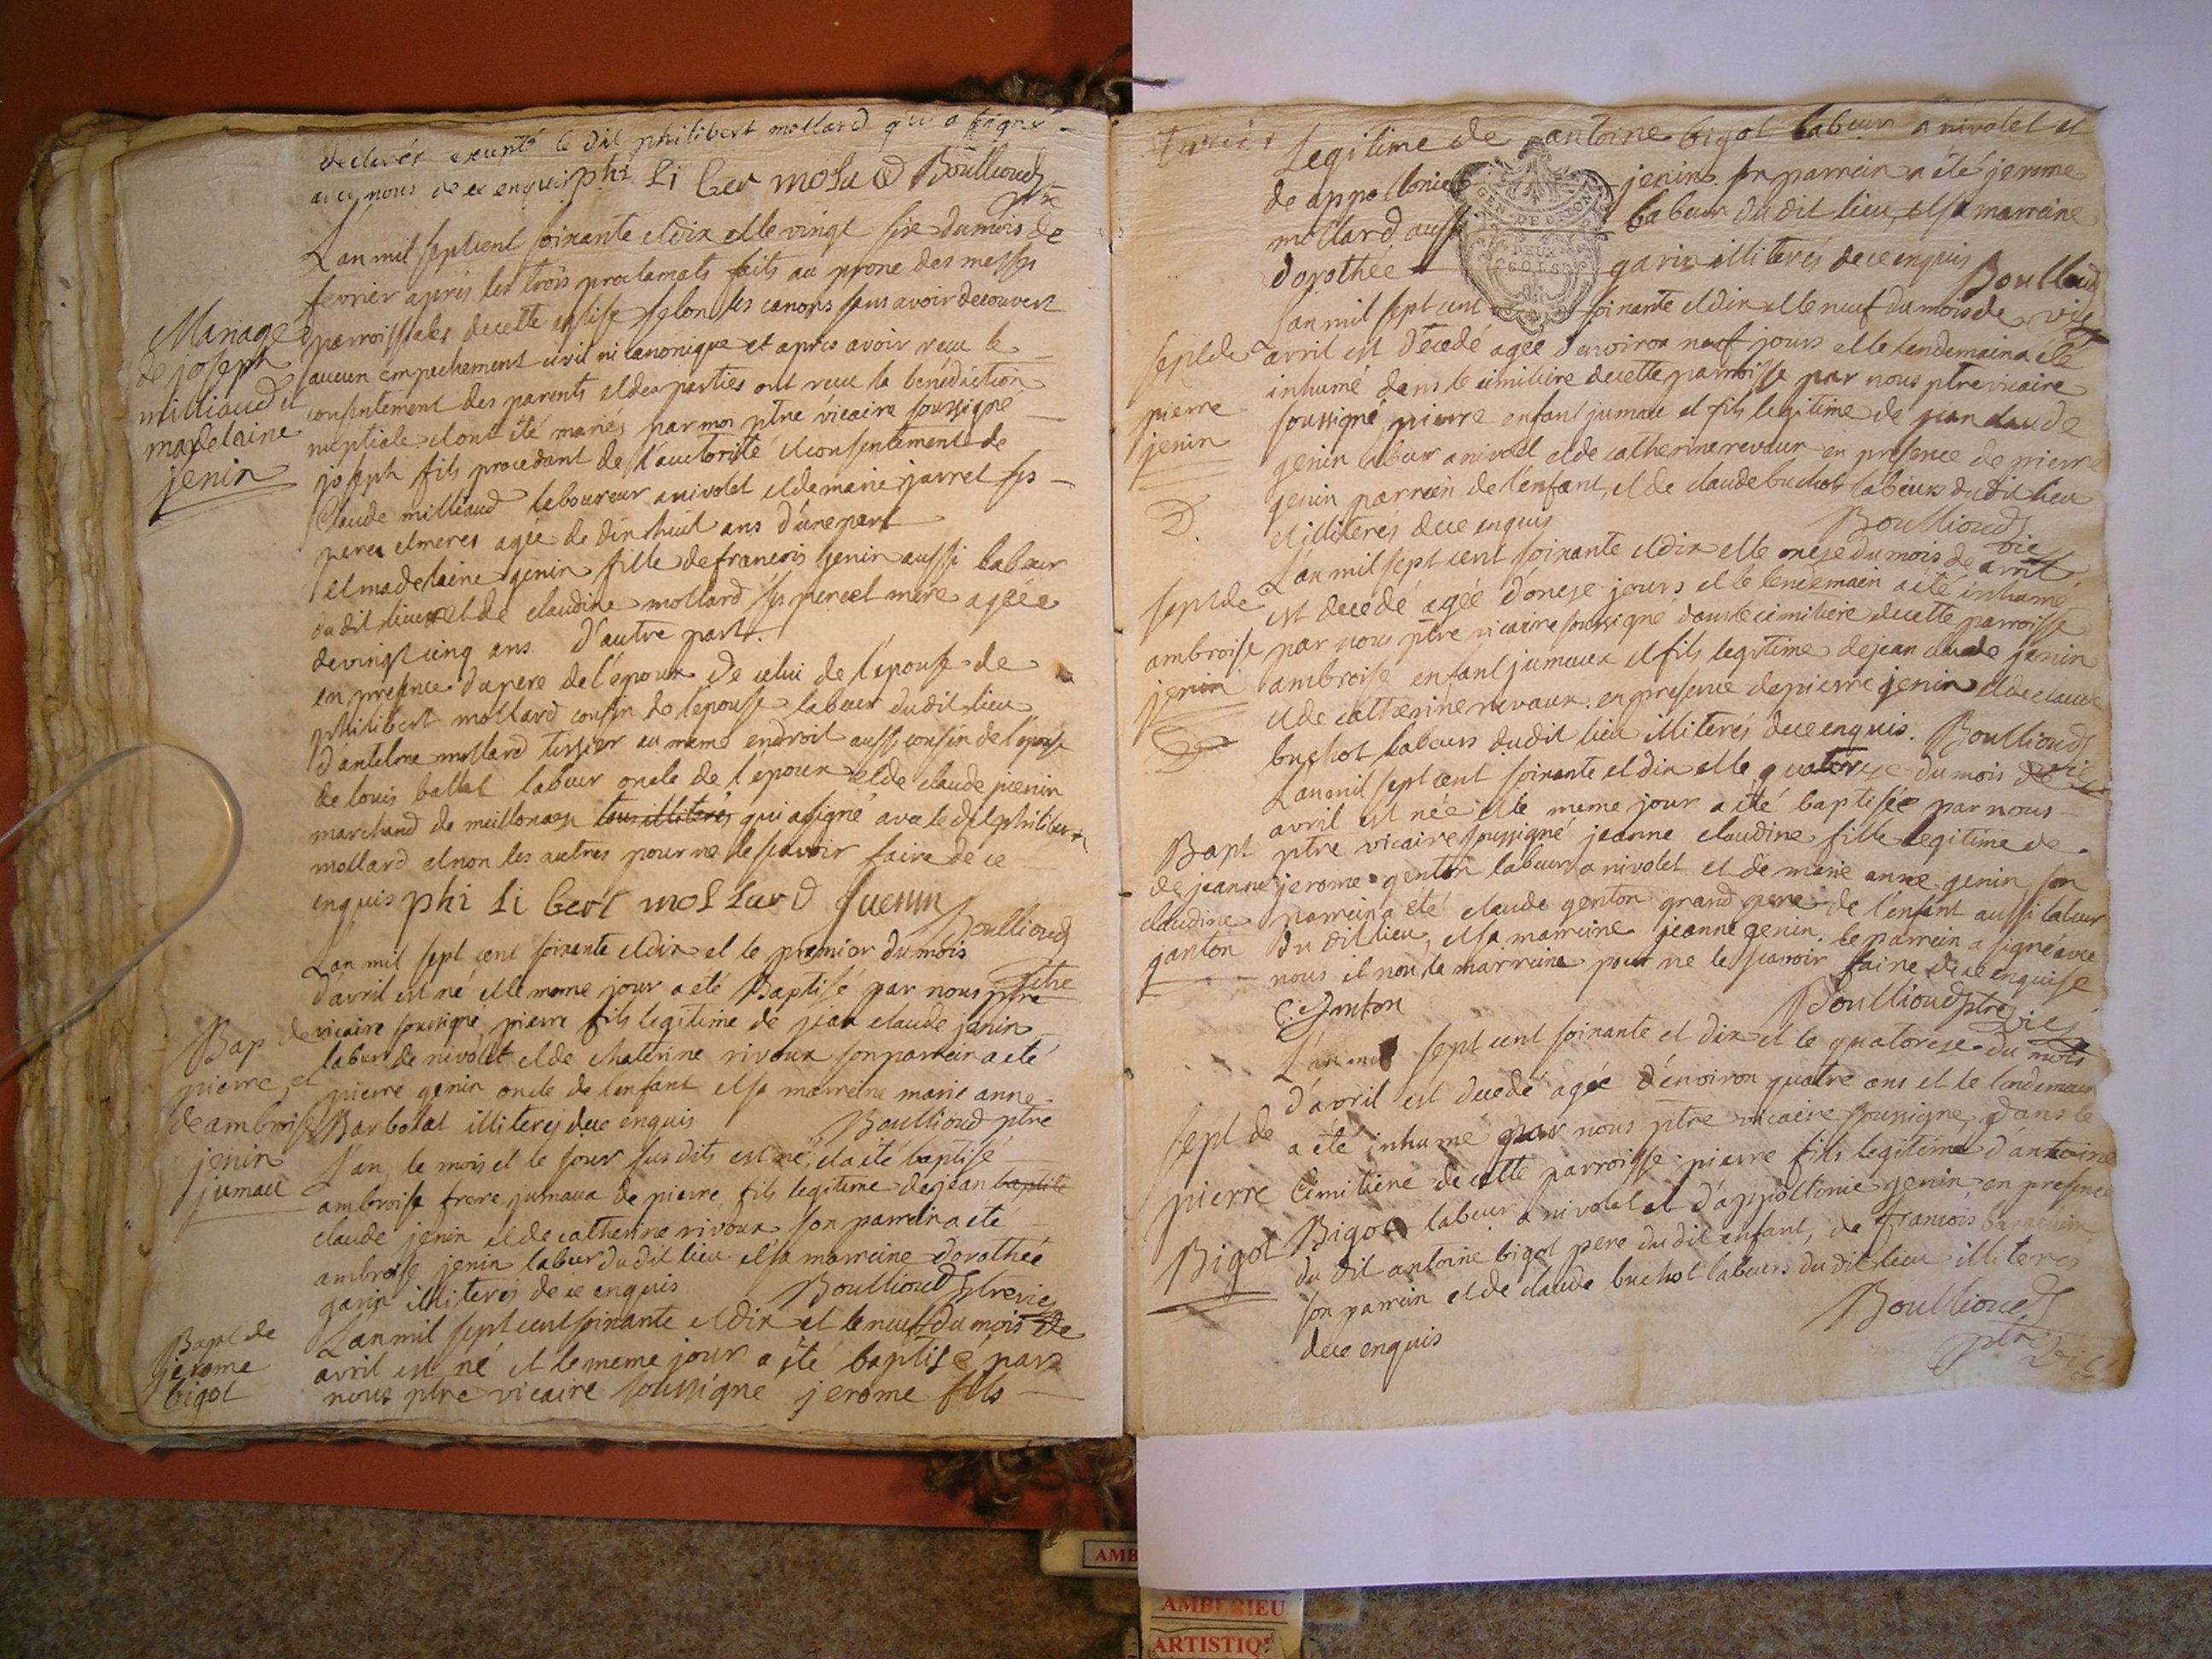 declarés excepté le dit philibert mollard qui a signé
avec nous de ce enquis phi li ber molard Boullioud
ptre
L'an mil sept cent soixante et dix et le vingt sixe du mois de
fevrier aprés les trois proclamats faits au prone des messes
parroissiales de cette eglise selon les canons sans avoir decouvert
aucun empechement civil ni canonique et aprés avoir recu le
consentement des parents et des parties ont recu la bénédiction
nuptiale et ont été mariés par moi ptre vicaire soussigné
joseph fils procedant de l'auctorité et consentement de
Claude milliaud laboureur a nivolet et de marie jarret ses
peres et meres agée de dix huit ans d'une part
et madelaine genin fille de francois genin aussi labeur
du dit lieu et de claudine mollard ses pere et mere agée
de vingt cinq ans d'autre part.
en presence du pere de l'époux de celui de l'épouse de
philibert mollard cousin de l'épouse labeur du dit lieu
d'antelme mollard tissier au meme endroit aussi cousin de l'épouse
de louis ballet labeur oncle de l'époux et de claude juenin
marchand de meillonas tous illiterés qui a signé avec le dit philibert
mollard et non les autres pour ne le scavoir faire de ce
enquis phi li bert mollard Juenin
Boullioud
ptre
Mariage
de joseph
milliaud et
madelaine
jenin
L'an mil sept cent soixante et dix et le premier du mois
d'avril est né et le meme jour a été Baptisé par nous ptre
vicaire soussigné pierre fils legitime de jean claude jenin
labeur de nivolet et de chaterine rivoux son parrein a été
pierre genin oncle de l'enfant et sa marreine marie anne
Barbotat illiterés de ce enquis Boullioud ptre
Bap de
pierre et
de ambroise
jenin
jumau
L'an, le mois et le jour susdits est né, et a été baptisé
ambroise frere jumaux de pierre fils legitime de jean baptiste
claude jenin et de catherine rivoux son parrein a été
ambroise jenin labeur du dit lieu et sa marreine dorothée
garin illiterés de ce enquis Boullioud ptre vic
Bapt de
jerome
bigot
L'an mil sept cent soixante et dix et le neuf du mois de
avril est né et le meme jour a été baptisé par
nous ptre vicaire soussigné jerome fils
Legitime de antoine bigot labeur a nivolet et
de appollonie jenin. son parrein a été jerome
mollard aussi labeur du dit lieu et sa marreine
dorothée garin illiterés de ce enquis
Boullioud
vic
GEN. DE DIJON
DEUX
SOLS
L'an mil sept cent soixante et dix et le neuf du mois de
avril est décedé agée d'environ neuf jours et le lendemain a été
inhumé dans le cimitiere de cette parroisse par nous ptre vicaire
soussigné pierre enfant jumau et fils legitime de jean claude
genin labeur a nivolet et de catherine revour en presence de pierre
genin parrein de l'enfant, et de claude buchot labeurs du dit lieu
et illiterés de ce enquis Boullioud
vic
Sept de
pierre
jenin
D.
L'an mil sept cent soixante et dix et le onzse du mois de avril
est decedé agée d'onze jours et le lendemain a été inhumé
par nous ptre vicaire soussigné dans le cimitiere de cette parroisse
ambroise enfant jumeaux et fils legitime de jean claude jenin
et de catherine rivaux. en presence de pierre jenin et de claude
buchot labeurs du dit lieu illiterés de ce enquis. Boullioud
vic
Sept de
ambroise
jenin
D
L'an mil sept cent soixante et dix et le quatorze du mois de
avril est née et le meme jour a été baptisée par nous
ptre vicaire soussigné jeanne claudine fille legitime de
jerome genton labeur a nivolet et de marie anne genin son
parrein a été claude genton grand pere de l'enfant aussi labeur
du dit lieu, et sa marreine jeanne genin. le parrein a signé avec
nous et non la marreine pour ne le scavoir faire de ce enquise
C. Janton
Boullioud ptre
vic
Bapt
de jeanne
claudine
ganton
L'an mil sept cent soixante et dix et le quatorze du mois
d'avril est decedé agée d'environ quatre ans et le lendemain
a été inhumé par nous ptre vicaire soussigné, dans le
Cimitiere de cette parroisse pierre fils legitime d'antoine
Bigot labeur a nivolet et d'appollonie genin, en presence
du dit antoine bigot pere du dit enfant, de francois
son parrein et de claude buchot labeurs du dit lieu illiteres
de ce enquis
Boullioud
ptre vic
Sept de
pierre
Bigot
AMBERIEU
ARTISTIQ: